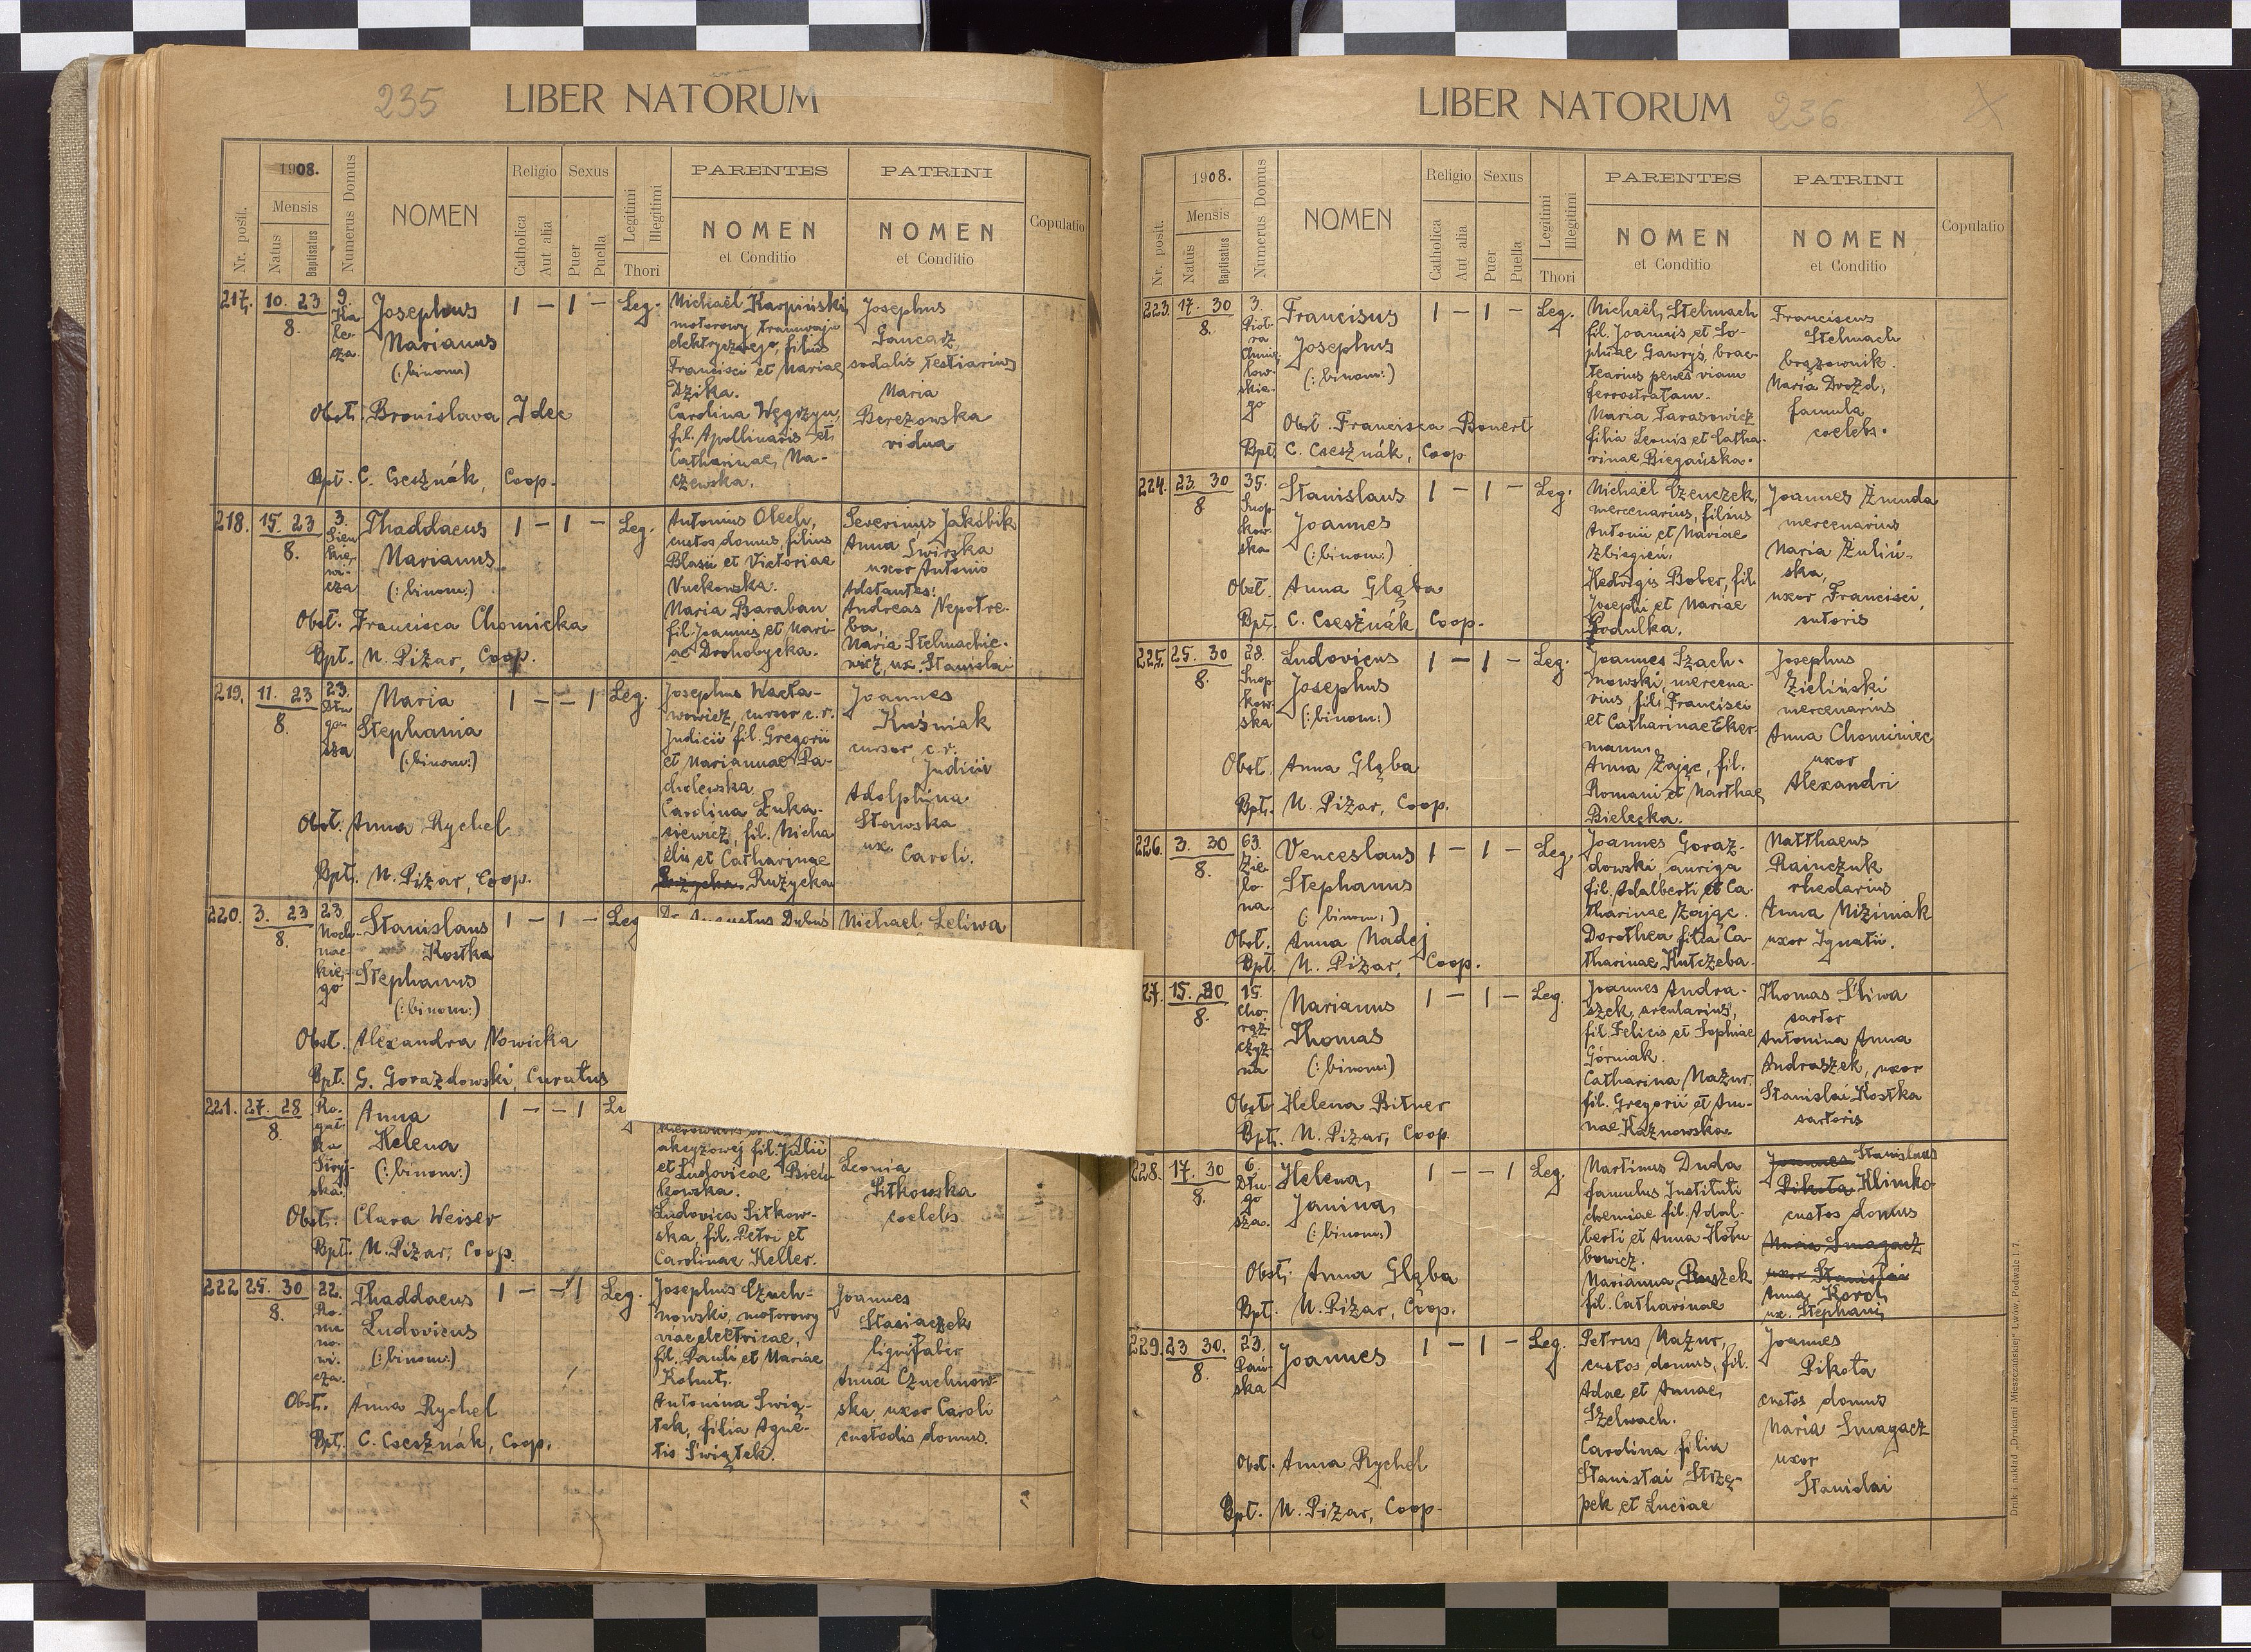 235 LIBER NATORUM
1908.
Nr. posit.
Mensis
Natus
Baptisatus
Numerus Domus
NOMEN
Religio
Catholica
Aut alia
Sexus
Puer
Puella
Legitimi
Illegitimi
Thori
PARENTES
NOMEN
et Conditio
PATRINI
NOMEN
et Conditio
Copulatio
217. 10. 23
8.
9.
Ka
le-
cza.
Josephus
Marianus
(: binom:)
Obst. Bronislava Idec
Bpt. C. Csesznák, Coop.
1 — 1 —
Leg.
Michaël Karpiński,
motorowy tramwaju
elektrycznego, filius
Francisci et Mariae
Dzika.
Carolina Węgrzyn,
fil. Apollinaris et
Catharinae, Ma-
czewska.
Josephus
Gancarz,
sodalis tectiarius
Maria
Berezowska
vidua
218. 15. 23
8.
3.
Sien
kie-
wi-
cza
Thaddaeus
Marianus
(: binom:)
Obst. Francisca Chomicka
Bpt. M. Piżar, Coop.
1 — 1 —
Leg.
Antonius Olech,
custos domus, filius
Blasii et Victoriae
Maria Baraban
fil. Joannis et Mari-
ae Drohobycka.
Severinus Jakóbik
Anna Świrska
uxor Antonio
Adstantes:
Andreas Nepotre-
ba,
Maria Stelmachie-
wicz, ux. Stanislai
219. 11. 23
8.
23.
Dłu
gosza
Maria
Stephania
(: binom:)
Obst. Anna Rychel
Bpt. M. Piżar, Coop.
1 — — 1
Leg.
Josephus Wacła-
wowicz, cursor c. r.
Judicii fil. Gregorii
et Mariannae Pa-
cholewska
Carolina Łuka-
siewicz, fil. Micha
ëlis et Catharinae
Rużycka
Joannes
Kuśniak
cursor c. r.
Judicii
Adolphina
Stawska
ux. Caroli.
220. 3. 23
8.
23
Moch
nac
kie-
go
Stanislaus
Kostka
Stephanus
(: binom:)
Obst. Alexandra Nowicka
Bpt. G. Gorazdowski, Curatus
1 — 1 —
Leg
Michael Leliwa
221. 27. 28
8.
Ro-
gat-
ka
Stryj-
ska.
Anna
Helena
(: binom:)
Obst. Clara Weiser
Bpt. M. Piżar, Coop.
1 — — 1
akcyzowej fil. Julii
et Ludovicae Bień
kowska.
Ludovica Sitkow-
ska, fil. Petri et
Carolinae Keller.
Leonia
Sitkowska
coelebs
222 25. 30
8.
22.
Ro-
ma
no-
wi-
cza.
Thaddaeus
Ludovicus
(: binom:)
Obst. Anna Rychel
Bpt. C. Csesznák, Coop.
1 — — 1
Leg.
Josephus Czuch-
nowski, motorowy
viae electricae,
fil. Pauli et Mariae
Kohut.
Antonina Świą-
tek, filia Agne-
tis Świątek.
Joannes
Stasiaczek
lignifaber
Anna Czuchnow-
ska uxor Caroli
custodis domus.
LIBER NATORUM 236
1908.
Nr. posit.
Mensis
Natus
Baptisatus
Numerus Domus
NOMEN
Religio
Catholica
Aut alia
Sexus
Puer
Puella
Legitimi
Illegitimi
Thori
PARENTES
NOMEN
et Conditio
PATRINI
NOMEN
et Conditio
Copulatio
223. 17. 30
8.
3.
Piot-
ra
Chmie-
low-
skie-
go
Francisus
Josephus
(: binom:)
Obst. Francisca Bonert
Bpt. C. Csesznák, Coop
1 — 1 —
Leg.
Michaël Stelmach
fil. Joannis et So-
phiae Gawryś, brac-
tearius penes viam
ferrostratam.
Maria Tarasowicz
filia Leonis et Catha-
rinae Biegańska.
Franciscus
Stelmach
brązownik.
Maria Drozd,
famula
coelebs.
224. 23. 30
8
35.
Snop
kow-
ska
Stanislaus
Joannes
(: binom:)
Obst. Anna Głąba
Bpt. C. Csesznák, Coop.
1 — 1 —
Leg.
Michaël Czenczek,
mercenarius, filius
Antonii et Mariae
Zbiegień.
Hedvigis Bober, fil.
Josephi et Mariae
Godulka.
Joannes Żmuda
mercenarius
Maria Żuliń-
ska,
uxor Francisci,
sutoris
225. 25. 30
8.
28.
Snop
kow-
ska
Ludovicus
Josephus
(: binom:)
Obst. Anna Głąba
Bpt. M. Piżar, Coop.
1 — 1 —
Leg.
Joannes Szach-
nowski, mercena-
rius, fil. Francisci
et Catharinae Eker-
mann.
Anna Zając, fil.
Romani et Marthae
Bielecka.
Josephus
Zieliński
mercenarius
Anna Chominiec
uxor
Alexandri
226. 3. 30
8.
63.
Zie
lo-
na.
Venceslaus
Stephanus
(: binom:)
Obst. Anna Madej
Bpt. M. Piżar, Coop.
1 — 1 —
Leg.
Joannes Goraz-
dowski, auriga
fil. Adalberti et Ca-
tharinae Zając.
Dorothea filia Ca-
tharinae Kutczeba.
Matthaeus
Rainczuk
rhedarius
Anna Miziniak
uxor Ignatii.
27. 15. 30
8.
15.
Cho-
rąż-
czyz-
na
Marianus
Thomas
(: binom:)
Obst. Helena Bitner
Bpt. M. Piżar, Coop.
1 — 1 —
Leg.
Joannes Andra-
szek, arcularius,
fil. Felicis et Sophiae
Górniak.
Catharina Mazur,
fil. Gregorii et An-
nae Kaznowska.
Thomas Śliwa
sartor
Antonina Anna
Andraszek, uxor
Stanislai Kostka
sartoris
228. 17. 30
8.
6.
Dłu-
go
sza.
Helena,
Janina,
(: binom:)
Obst. Anna Głąba
Bpt. M. Piżar, Coop.
1 — — 1
Leg.
Martinus Duda
famulus Instituti
chemiae fil. Adal-
berti et Anna Hołu-
bowicz.
Marianna Ruszek
fil. Catharinae
Joannes Stanislaus
Pikota Klimko
custos domus
Maria Smagacz
uxor Stanislai
Anna Koroł,
ux. Stephani,
229. 23 30.
8.
23.
Pań-
ska
Joannes
Obst. Anna Rychel
Bpt. M. Piżar, Coop.
1 — 1 —
Leg.
Petrus Mazur,
custos domus, fil.
Adae et Annae,
Szelwach.
Carolina filia
Stanislai Strzę-
pek et Luciae
Joannes
Pikota
custos domus
Maria Smagacz
uxor
Stanislai
Druk i nakład „Drukarni Mieszczańskiej" Lwów, Podwale l. 7